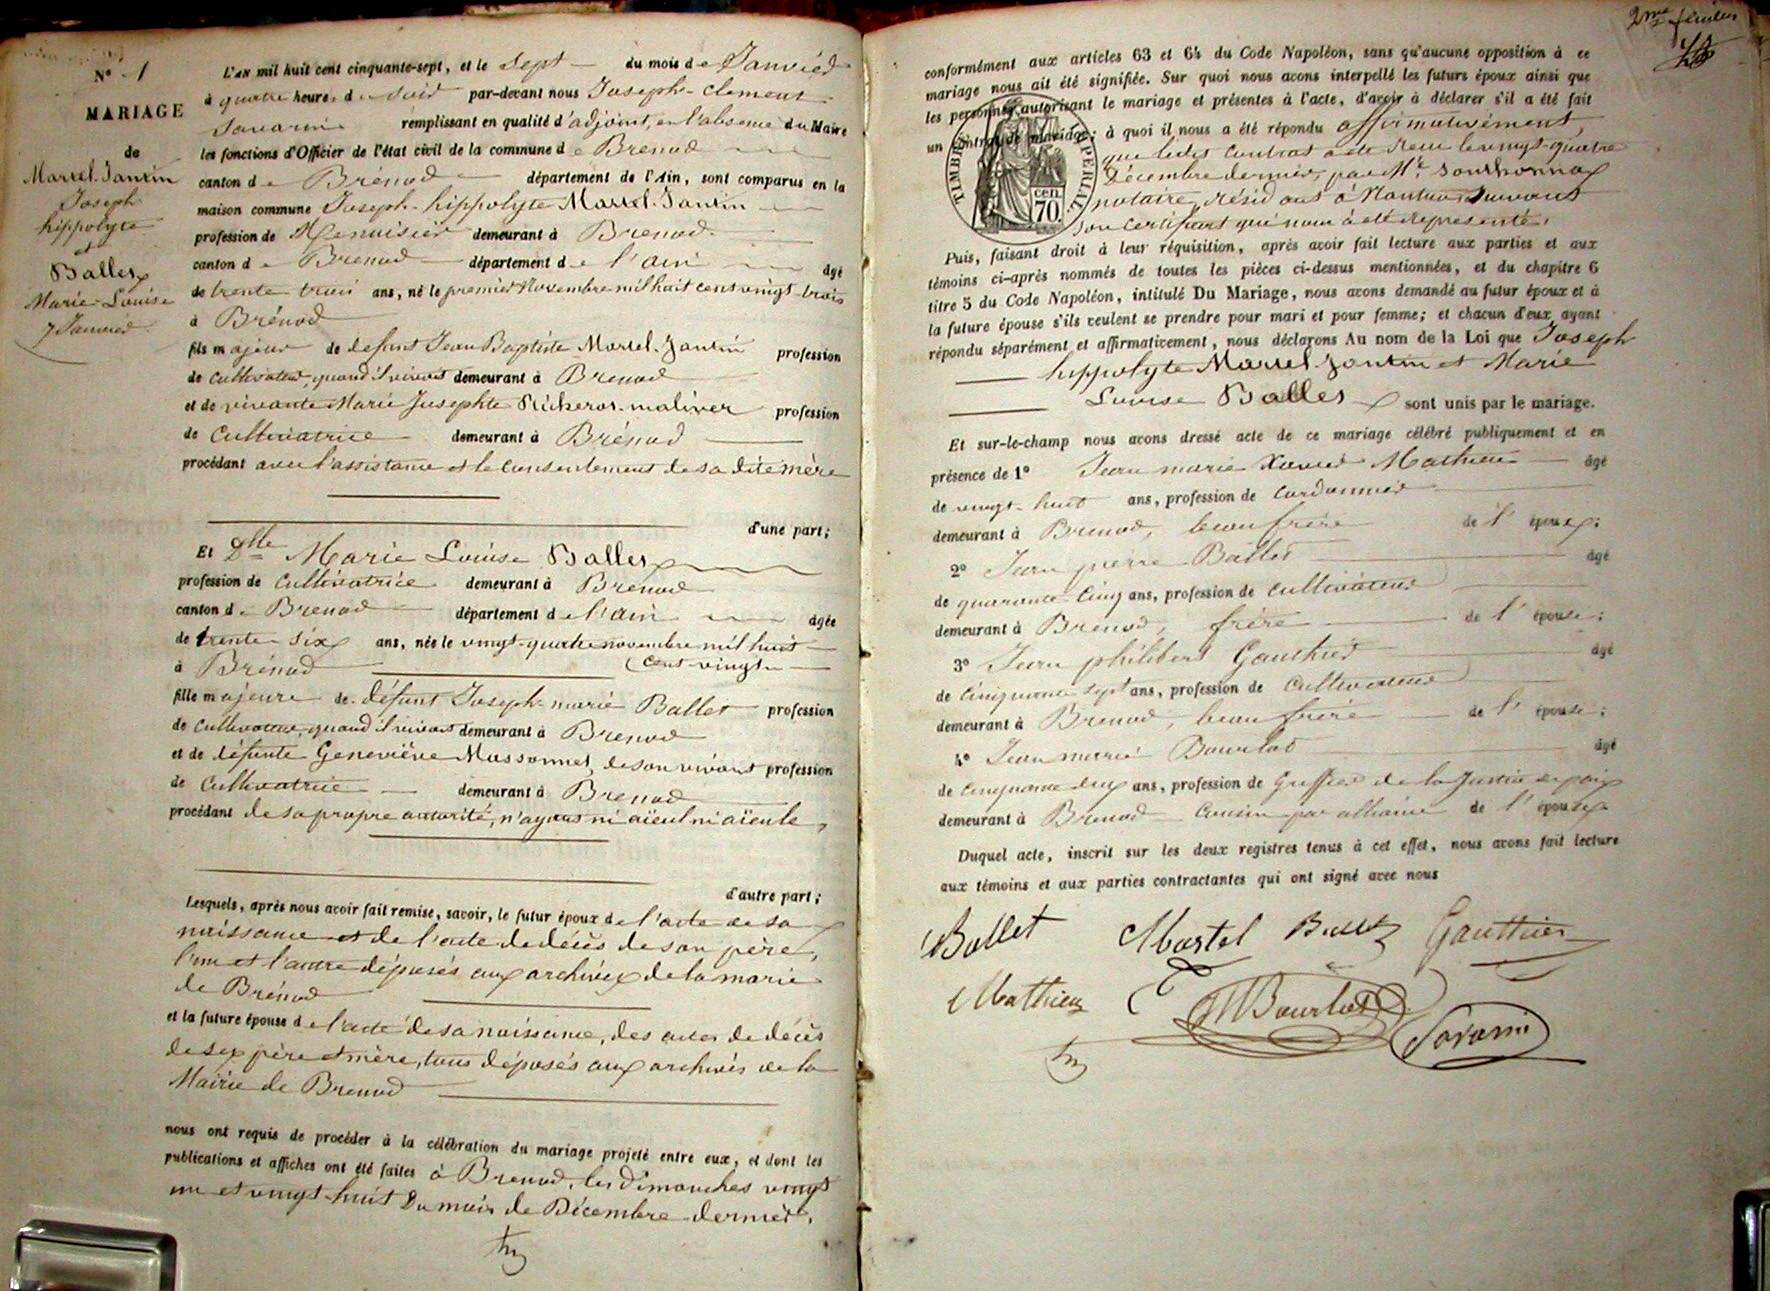 N° 1
MARIAGE
de
Martel-Jantin
Joseph
hippolyte
et
Ballet
Marie-Louise
7 Janvier
L'AN mil huit cent cinquante-sept, et le sept du mois de Janvier
à quatre heures de soir par-devant nous Joseph-Clement
Savarin remplissant en qualité d'adjoint, en l'absence du Maire
les fonctions d'Officier de l'état civil de la commune de Brenod
canton de Brénod département de l'Ain, sont comparus en la
maison commune Joseph-hippolyte Martel-Jantin
profession de Menuisier demeurant à Brenod
canton de Brenod département de l'ain âgé
de trente trois ans, né le premier Novembre mil huit cent vingt-trois
à Brénod
fils majeur de defunt Jean Baptiste Martel-Jantin profession
de cultivateur, quand il vivait demeurant à Brenod
et de vivante Marie Josephte maliver profession
de Cultivatrice demeurant à Brénod
procédant avec l'assistance et le consentement de sa dite mère
d'une part;
Et Dlle Marie Louise Ballet
profession de Cultivatrice demeurant à Brenod
canton de Brenod département de l'ain âgée
de trente six ans, née le vingt-quatre novembre mil huit
à Brénod (cent-vingt
fille majeure de défunt Joseph-marie Ballet profession
de Cultivateur, quand il vivait demeurant à Brenod
et de défunte Geneviève Massonnet, de son vivant profession
de Cultivatrice demeurant à Brenod
procédant de sa propre autorité, n'ayant ni aïeul ni aïeule,
d'autre part;
Lesquels, après nous avoir fait remise, savoir, le futur époux de l'acte de sa
naissance et de l'acte de décès de son père,
l'un et l'autre déposés aux archives de la marie
de Brénod
et la future épouse de l'acte de sa naissance, des actes de décès
de ses père et mère, tous déposés aux archives de la
Mairie de Brenod
nous ont requis de procéder à la célébration du mariage projeté entre eux, et dont les
publications et affiches ont été faites à Brenod, les Dimanches vingt
un et vingt-huit Du mois de Décembre dernier,
2me feuillet
conformément aux articles 63 et 64 du Code Napoléon, sans qu'aucune opposition à ce
mariage nous ait été signifiée. Sur quoi nous avons interpellé les futurs époux ainsi que
les personnes autorisant le mariage et présentes à l'acte, d'avoir à déclarer s'il a été fait
un contrat de mariage; à quoi il nous a été répondu affirmativement,
que ledit Contrat a été reçu le vingt-quatre
Décembre dernier, par Me Southonnax
notaire, résidant à Nantua, suivant
son certificat qui nous à été représenté.
TIMBRE IMPERIAL.
cen.
70.
Puis, faisant droit à leur réquisition, après avoir fait lecture aux parties et aux
témoins ci-après nommés de toutes les pièces ci-dessus mentionnées, et du chapitre 6
titre 5 du Code Napoléon, intitulé Du Mariage, nous avons demandé au futur époux et à
la future épouse s'ils veulent se prendre pour mari et pour femme; et chacun d'eux ayant
répondu séparément et affirmativement, nous déclarons Au nom de la Loi que Joseph
hippolyte Martel Jantin et Marie
Louise Ballet sont unis par le mariage.
Et sur-le-champ nous avons dressé acte de ce mariage célébré publiquement et en
présence de 1° Jean marie Xavier Mathieu âgé
de vingt-huit ans, profession de Cordonnier
demeurant à Brenod, beau frère de l'époux;
2° Jean pierre Ballet âgé
de quarante-Cinq ans, profession de Cultivateur
demeurant à Brenod, frère de l'épouse;
3° Jean philibert Gauthier âgé
de Cinquante sept ans, profession de Cultivateur
demeurant à Brenod, beau frère de l'épouse;
4° Jean marie Bourlot âgé
de Cinquante deux ans, profession de Greffier de la Justice de paix
demeurant à Brenod Cousin par alliance de l'épouse
Duquel acte, inscrit sur les deux registres tenus à cet effet, nous avons fait lecture
aux témoins et aux parties contractantes qui ont signé avec nous
Ballet Martel Ballet Gauthier
Mathieu Bourlot Savarin